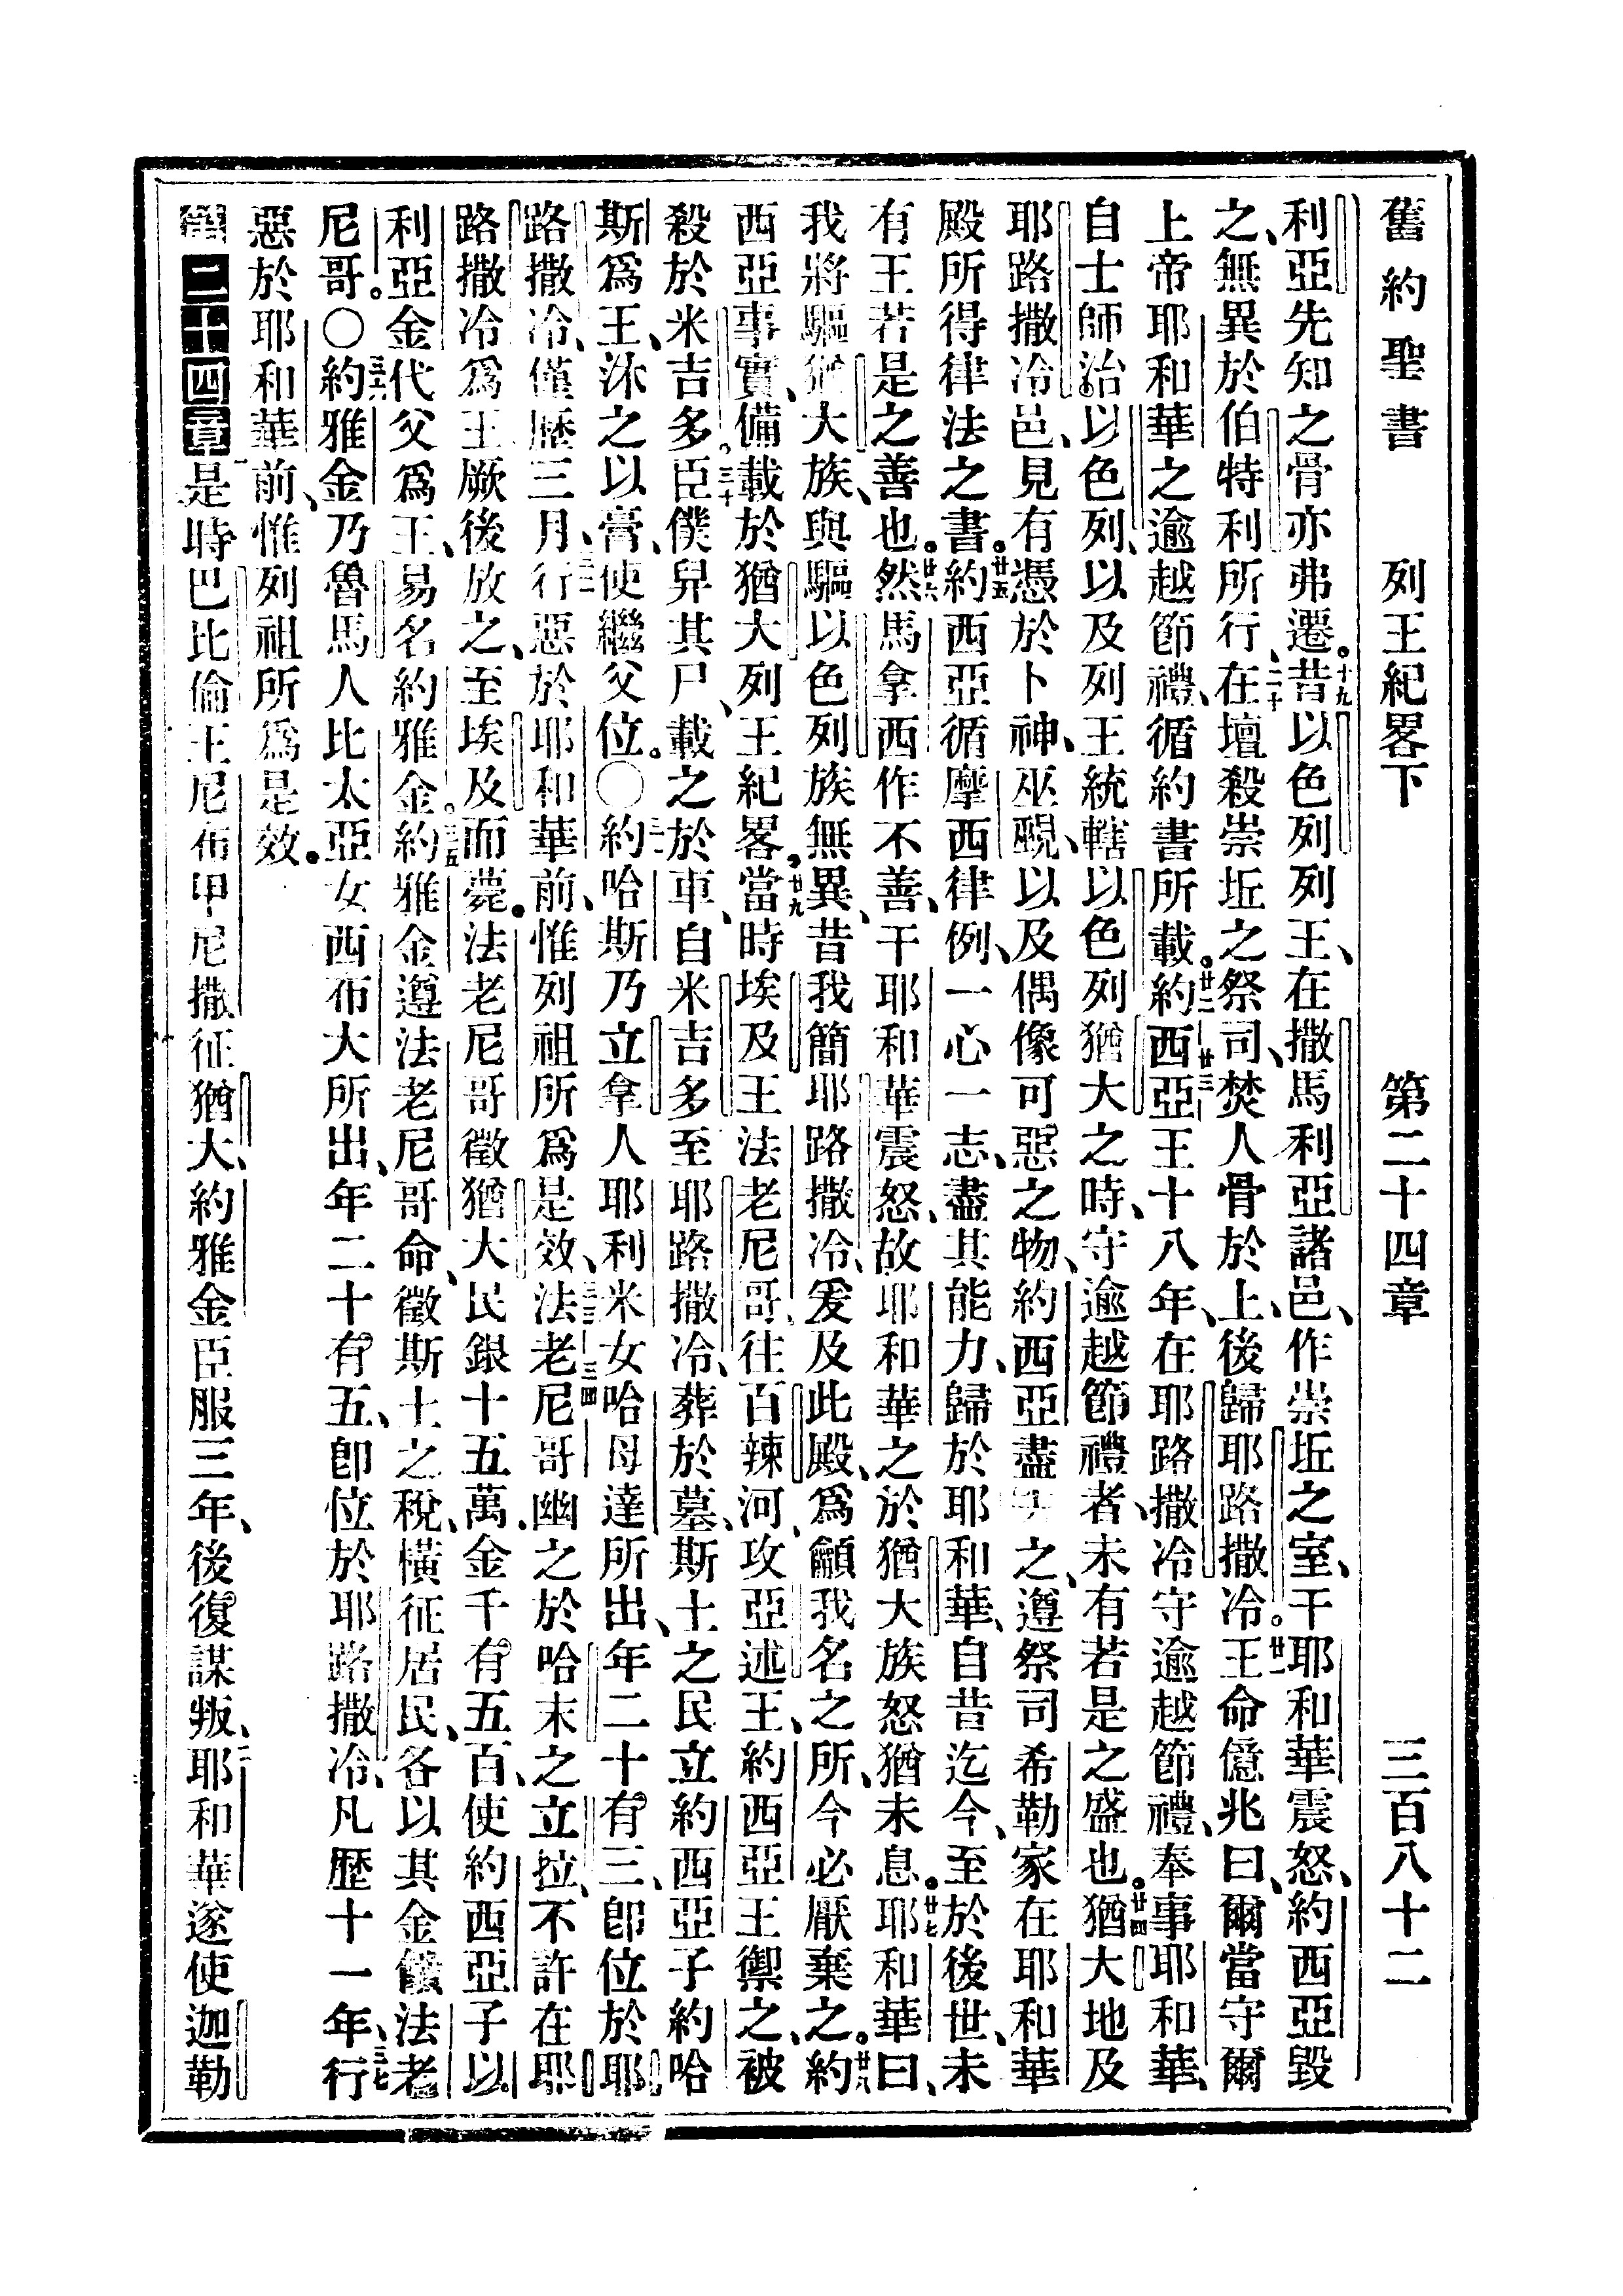 舊約聖書　列王紀畧下　第二十四章　三百八十二
利亞先知之骨亦弗遷。十九昔以色列列王、在撒馬利亞諸邑、作崇坵之室、干耶和華震怒、約西亞毀
之、無異於伯特利所行、二十在壇殺崇坵之祭司、焚人骨於上、後歸耶路撒冷。廿一王命億兆曰、爾當守爾
上帝耶和華之逾越節禮、循約書所載。廿二約廿三西亞王十八年、在耶路撒冷守逾越節禮、奉事耶和華、
自士師治以色列、以及列王統轄以色列猶大之時、守逾越節禮者、未有若是之盛也。廿四猶大地及
耶路撒冷邑、見有憑於卜神、巫覡、以及偶像可惡之物、約西亞盡去之、遵祭司希勒家在耶和華
殿所得律法之書。廿五約西亞循摩西律例、一心一志、盡其能力、歸於耶和華、自昔迄今、至於後世、未
有王若是之善也。廿六然馬拿西作不善、干耶和華震怒、故耶和華之於猶大族怒猶未息。廿七耶和華曰、
我將驅猶大族、與驅以色列族無異、昔我簡耶路撒冷、爰及此殿、爲龥我名之所、今必厭棄之。廿八約
西亞事實、備載於猶大列王紀畧。廿九當時埃及王法老尼哥、往百辣河、攻亞述王、約西亞王禦之、被
殺於米吉多。三十臣僕舁其尸、載之於車、自米吉多至耶路撒冷、葬於墓、斯土之民立約西亞子約哈
斯爲王、沐之以膏、使繼父位。〇三一約哈斯乃立拿人耶利米女哈母達所出、年二十有三、卽位於耶
路撒冷、僅歷三月、三二行惡於耶和華前、惟列祖所爲是效、三三法老三四尼哥幽之於哈末之立拉、不許在耶
路撒冷爲王厥後放之、至埃及而薨。法老尼哥徵猶大民銀十五萬、金千有五百、使約西亞子以
利亞金代父爲王、易名約雅金。三五約雅金遵法老尼哥命、徵斯土之稅、橫征居民、各以其金餽法老
尼哥。〇三六約雅金乃魯馬人比太亞女西布大所出、年二十有五、卽位於耶路撒冷、凡歷十一年、三七行
惡於耶和華前、惟列祖所爲是效。
第二十四章一是時巴比倫王尼布甲尼撒征猶大、約雅金臣服三年、後復謀叛、二耶和華遂使迦勒